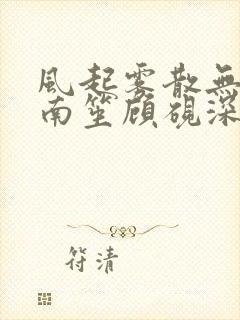 風起雲散無
南笙顧硯深
符清